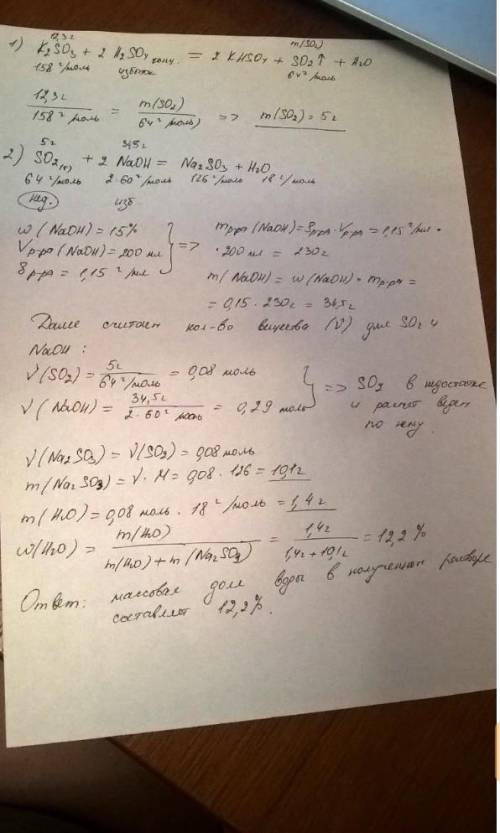 12,3г m(SO₂)
1) K₂SO₃ + 2 H₂SO₄ конц. = 2 KHSO₄ + SO₂↑ + H₂O
158 г/моль избыток 64 г/моль
12,3г / 158 г/моль = m(SO₂) / 64 г/моль) => m(SO₂) = 5г
5г 34,5г
2) SO₂(г) + 2 NaOH = Na₂SO₃ + H₂O
64 г/моль 2·60 г/моль 126 г/моль 18 г/моль
нед. изб.
w (NaOH) = 15%
Vр-ра (NaOH) = 200 мл
ρр-ра = 1,15 г/мл
=> mр-ра (NaOH) = ρр-ра · Vр-ра = 1,15 г/мл ·
· 200 мл = 230г
m(NaOH) = w(NaOH) · mр-ра =
= 0,15 · 230г = 34,5г
Далее считаем кол-во вещества (ν) для SO₂ и
NaOH :
ν(SO₂) = 5г / 64 г/моль = 0,08 моль
ν(NaOH) = 34,5г / 2·60 г/моль = 0,29 моль
=> SO₂ в недостатке
и расчет ведем
по нему.
ν(Na₂SO₃) = ν(SO₂) = 0,08 моль
m(Na₂SO₃) = ν · M = 0,08 · 126 = 10,1г
m(H₂O) = 0,08 моль · 18 г/моль = 1,4г
w(H₂O) = m(H₂O) / m(H₂O) + m(Na₂SO₃) = 1,4г / 1,4г + 10,1г = 12,2%
Ответ: массовая доля воды в полученном растворе
составляет 12,2%.